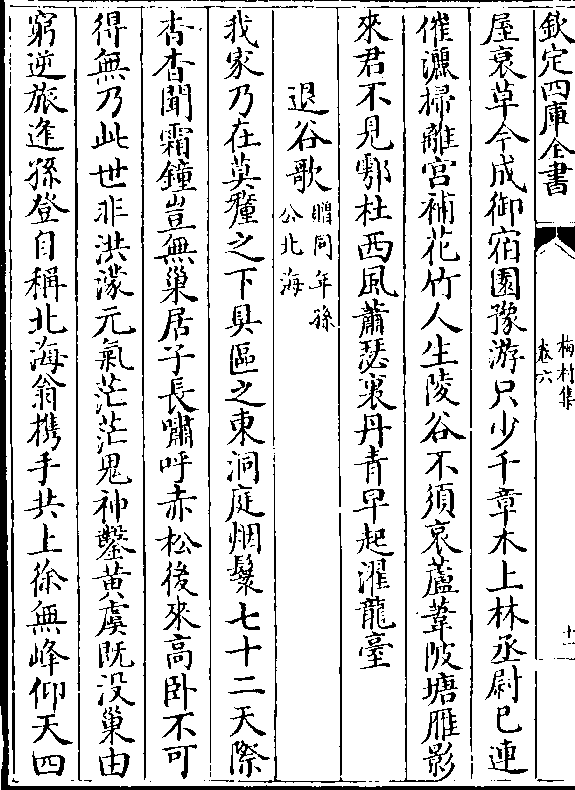 欽定四庫全書
梅村集
卷六
十二
屋衰草今成御宿園豫游只少千章木上林丞尉已連
催灑掃離宮補花竹人生陵谷不須哀蘆葦陂塘雁影
來君不見鄠杜西風蕭瑟裏丹青早起濯龍臺
退谷歌
贈同年孫
公北海
我家乃在莫釐之下具區之東洞庭烟鬟七十二天際
杳杳聞霜鐘豈無巢居子長嘯呼赤松後來高卧不可
得無乃此世非洪濛元氣茫茫鬼神鑿黃虞既没巢由
窮逆旅逢孫登自稱北海翁攜手共上徐無峰仰天四